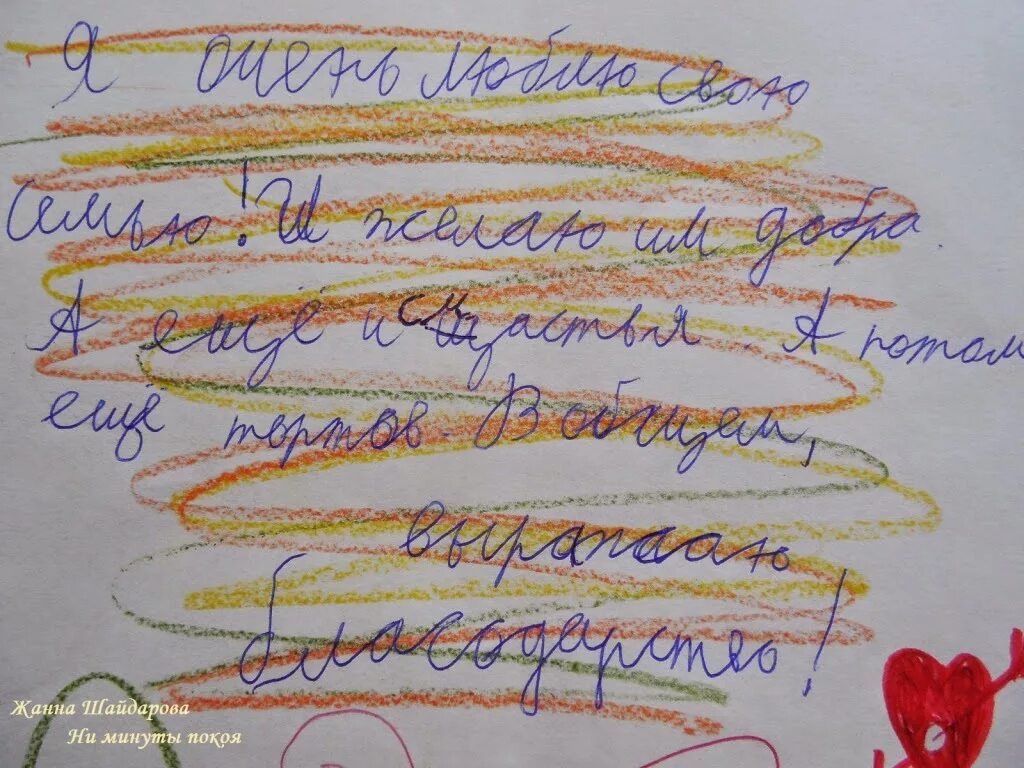 Я очень люблю свою
семью! И желаю им добра.
А ещё и счастья. А потом
ещё тортов. Вобщем,
выражаю
благодарство!
Жанна Шайдарова
Ни минуты покоя